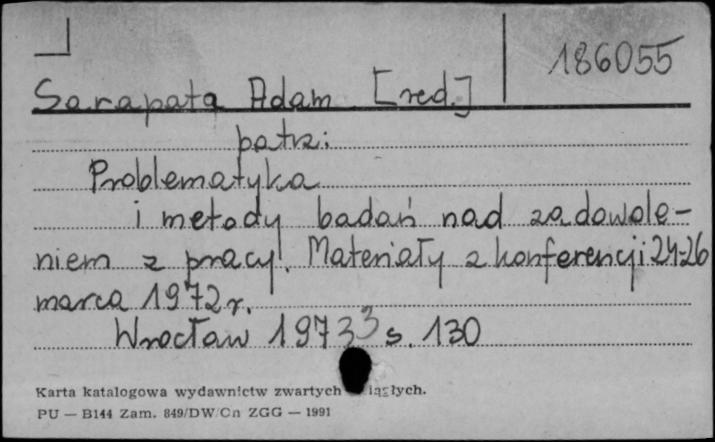 186055
Sarapata Adam [red.]
patrz:
Problematyka
i metody badań nad zadowole-
niem z pracy. Materiały z konferencji 24-26
marca 1972 r.
Wrocław 1973 s. 130
Karta katalogowa wydawnictw zwartych iągłych.
PU — B144 Zam. 849/DW/Cn ZGG — 1991